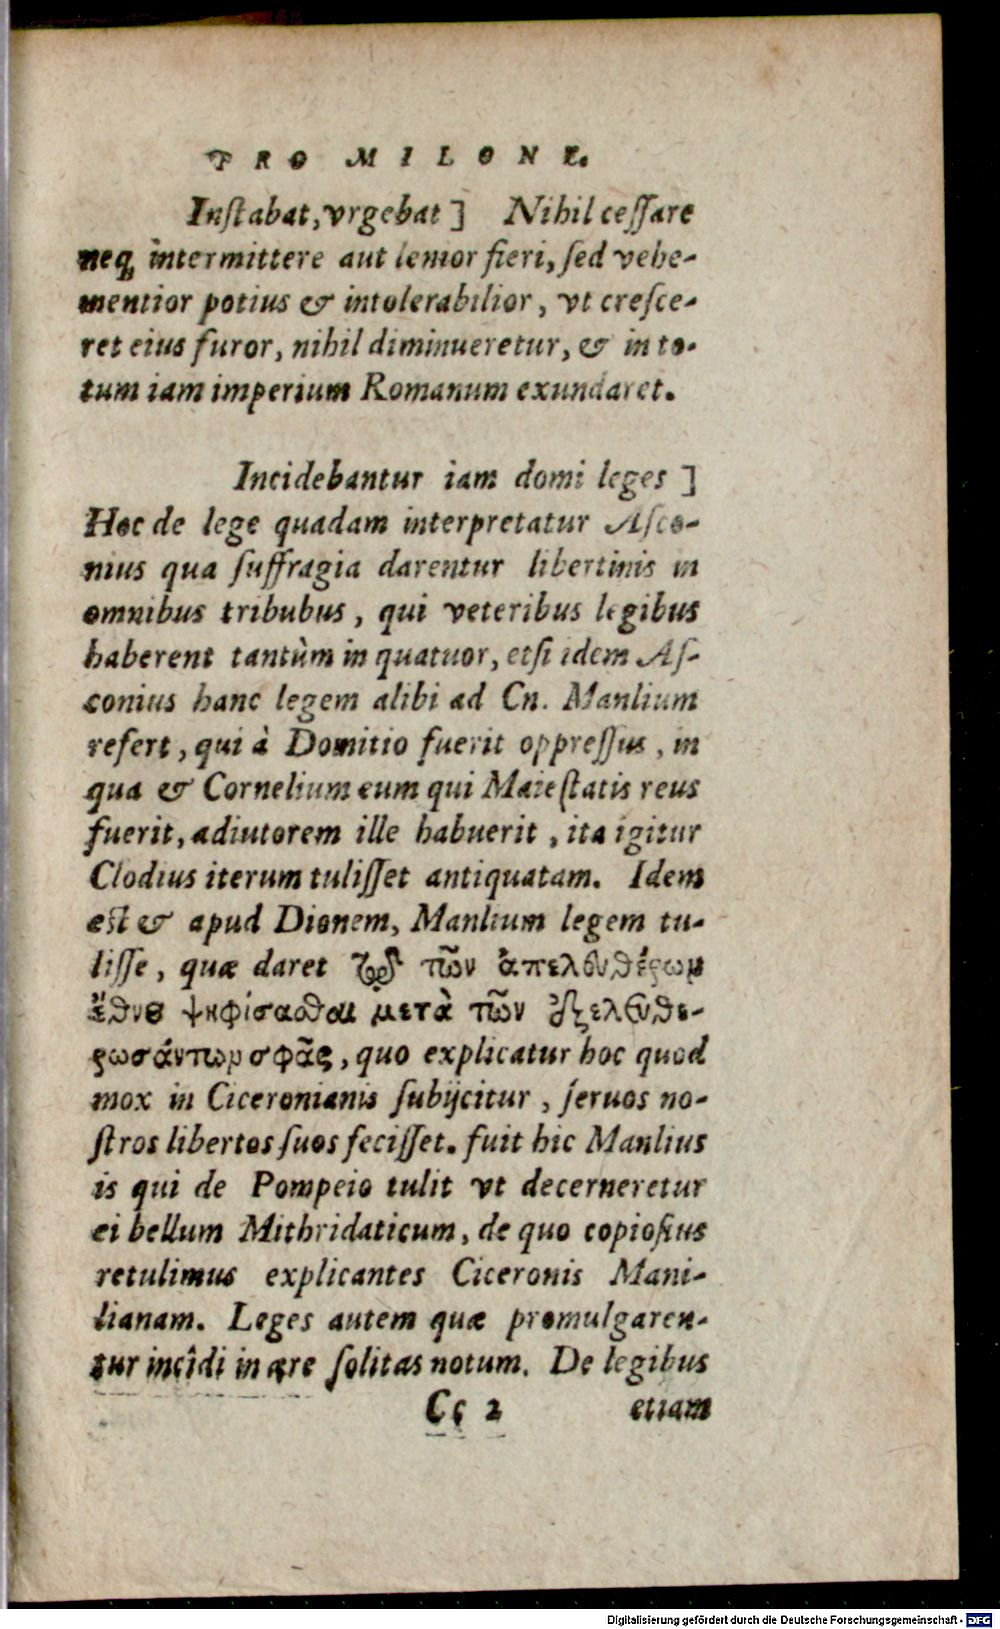 PRO MILONE.
Inſtabat, vrgebat ] Nihil ceſſare
neq; intermittere aut lenior fieri, ſed vehe-
mentior potius & intolerabilior, vt creſce-
ret eius furor, nihil diminueretur, & in to-
tum iam imperium Romanum exundaret.
Incidebantur iam domi leges ]
Hoc de lege quadam interpretatur Aſco-
nius qua ſuffragia darentur libertinis in
omnibus tribubus, qui veteribus legibus
haberent tantùm in quatuor, etſi idem Aſ-
conius hanc legem alibi ad Cn. Manlium
refert, qui à Domitio fuerit oppreſſus, in
qua & Cornelium eum qui Maieſtatis reus
fuerit, adiutorem ille habuerit, ita igitur
Clodius iterum tuliſſet antiquatam. Idem
eſt & apud Dionem, Manlium legem tu-
liſſe, quæ daret τῷ τῶν ἀπελευθέρων
ἔθνει ψηφίσασθαι μετὰ τῶν ἐξελευθε-
ρωσάντων σφᾶς, quo explicatur hoc quod
mox in Ciceronianis ſubijcitur, ſeruos no-
ſtros libertos ſuos feciſſet. fuit hic Manlius
is qui de Pompeio tulit vt decerneretur
ei bellum Mithridaticum, de quo copioſius
retulimus explicantes Ciceronis Mani-
lianam. Leges autem quæ promulgaren-
tur incîdi in ære ſolitas notum. De legibus
Cc 2 etiam
Digitalisierung gefördert durch die Deutsche Forschungsgemeinschaft - DFG